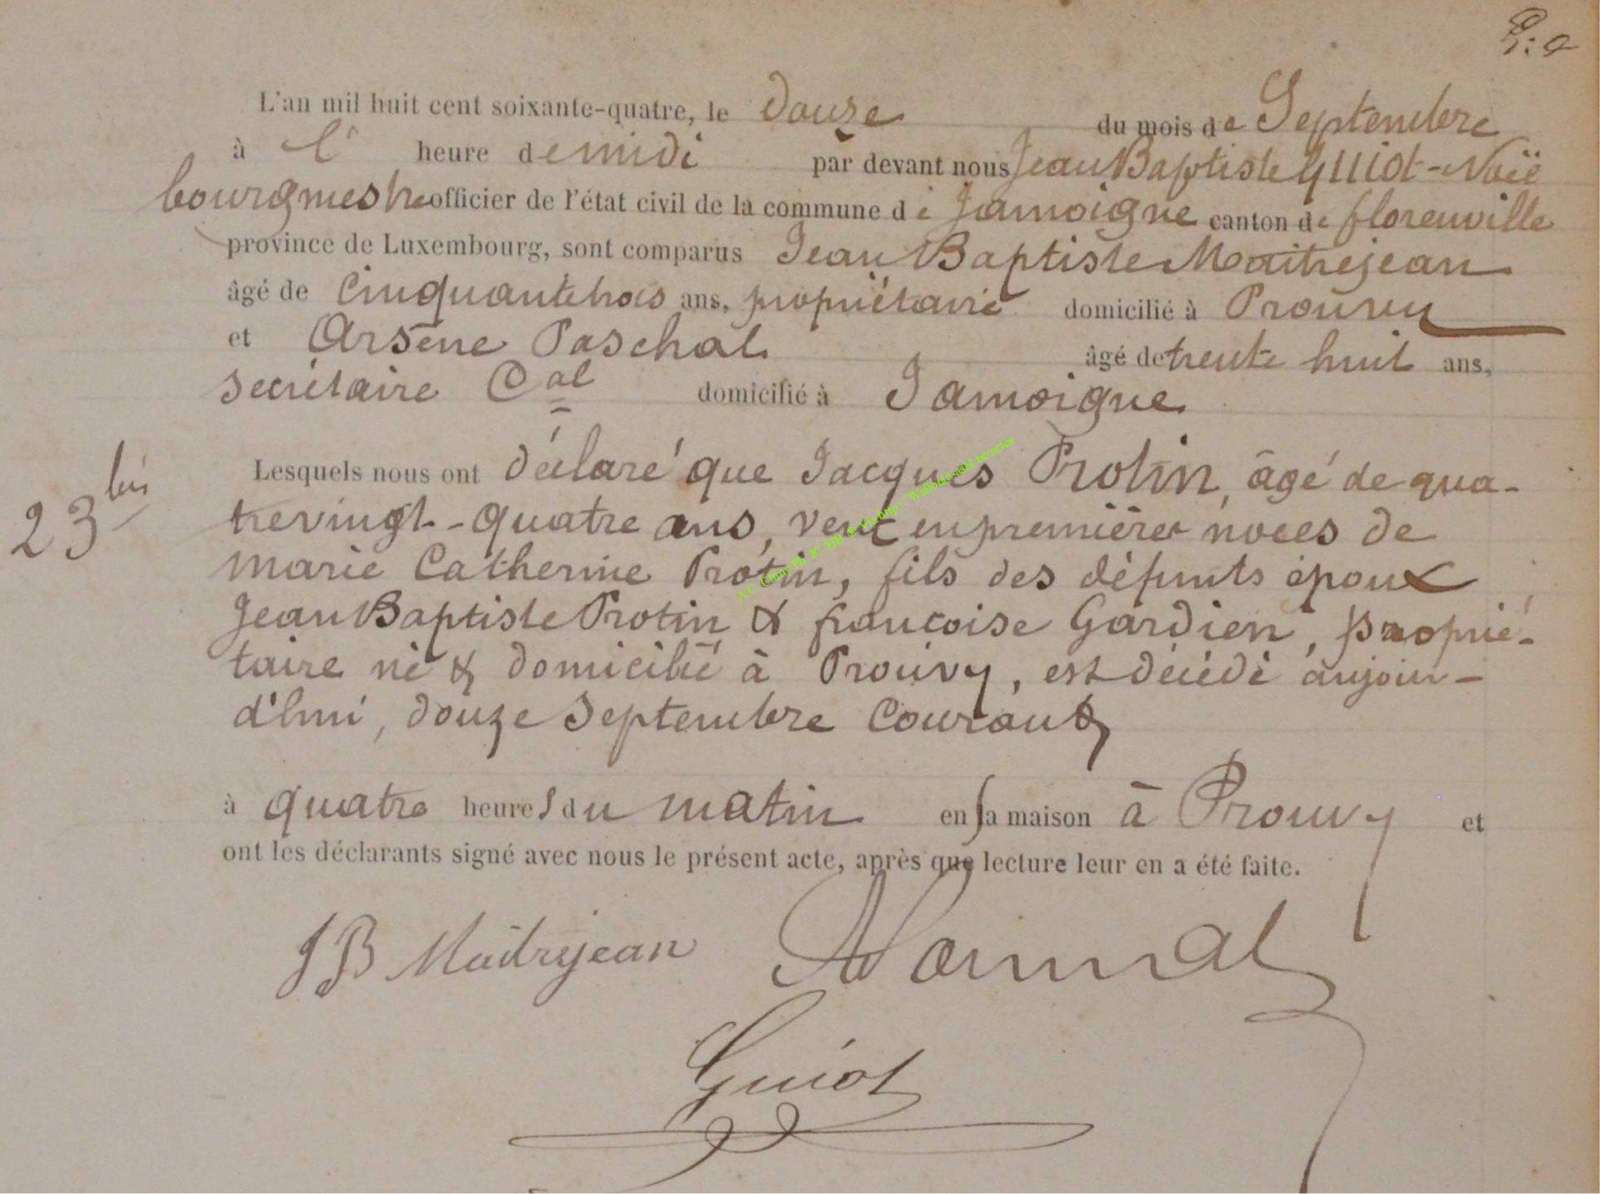 L'an mil huit cent soixante-quatre, le douze du mois de Septembre
à l' heure de midi par devant nous Jean Baptiste Guiot-Noël
bourgmestre officier de l'état civil de la commune de Jamoigne canton de florenville
province de Luxembourg, sont comparus Jean Baptiste Maitrejean
âgé de Cinquante trois ans, propriétaire domicilié à Prouvy
et Arsène Paschal âgé de trente huit ans,
Secrétaire Cal domicilié à Jamoigne
23 bis
Lesquels nous ont déclaré que Jacques Protin, âgé de qua-
trevingt-quatre ans, veuf en premières noces de
Marie Catherine Protin, fils des défunts époux
Jean Baptiste Protin & françoise Gardien, proprié-
taire né & domicilié à Prouvy, est décédé aujour-
d'hui, douze Septembre Courant
à quatre heures du matin en sa maison à Prouvy et
ont les déclarants signé avec nous le présent acte, après que lecture leur en a été faite.
JB Maitrejean
Guiot